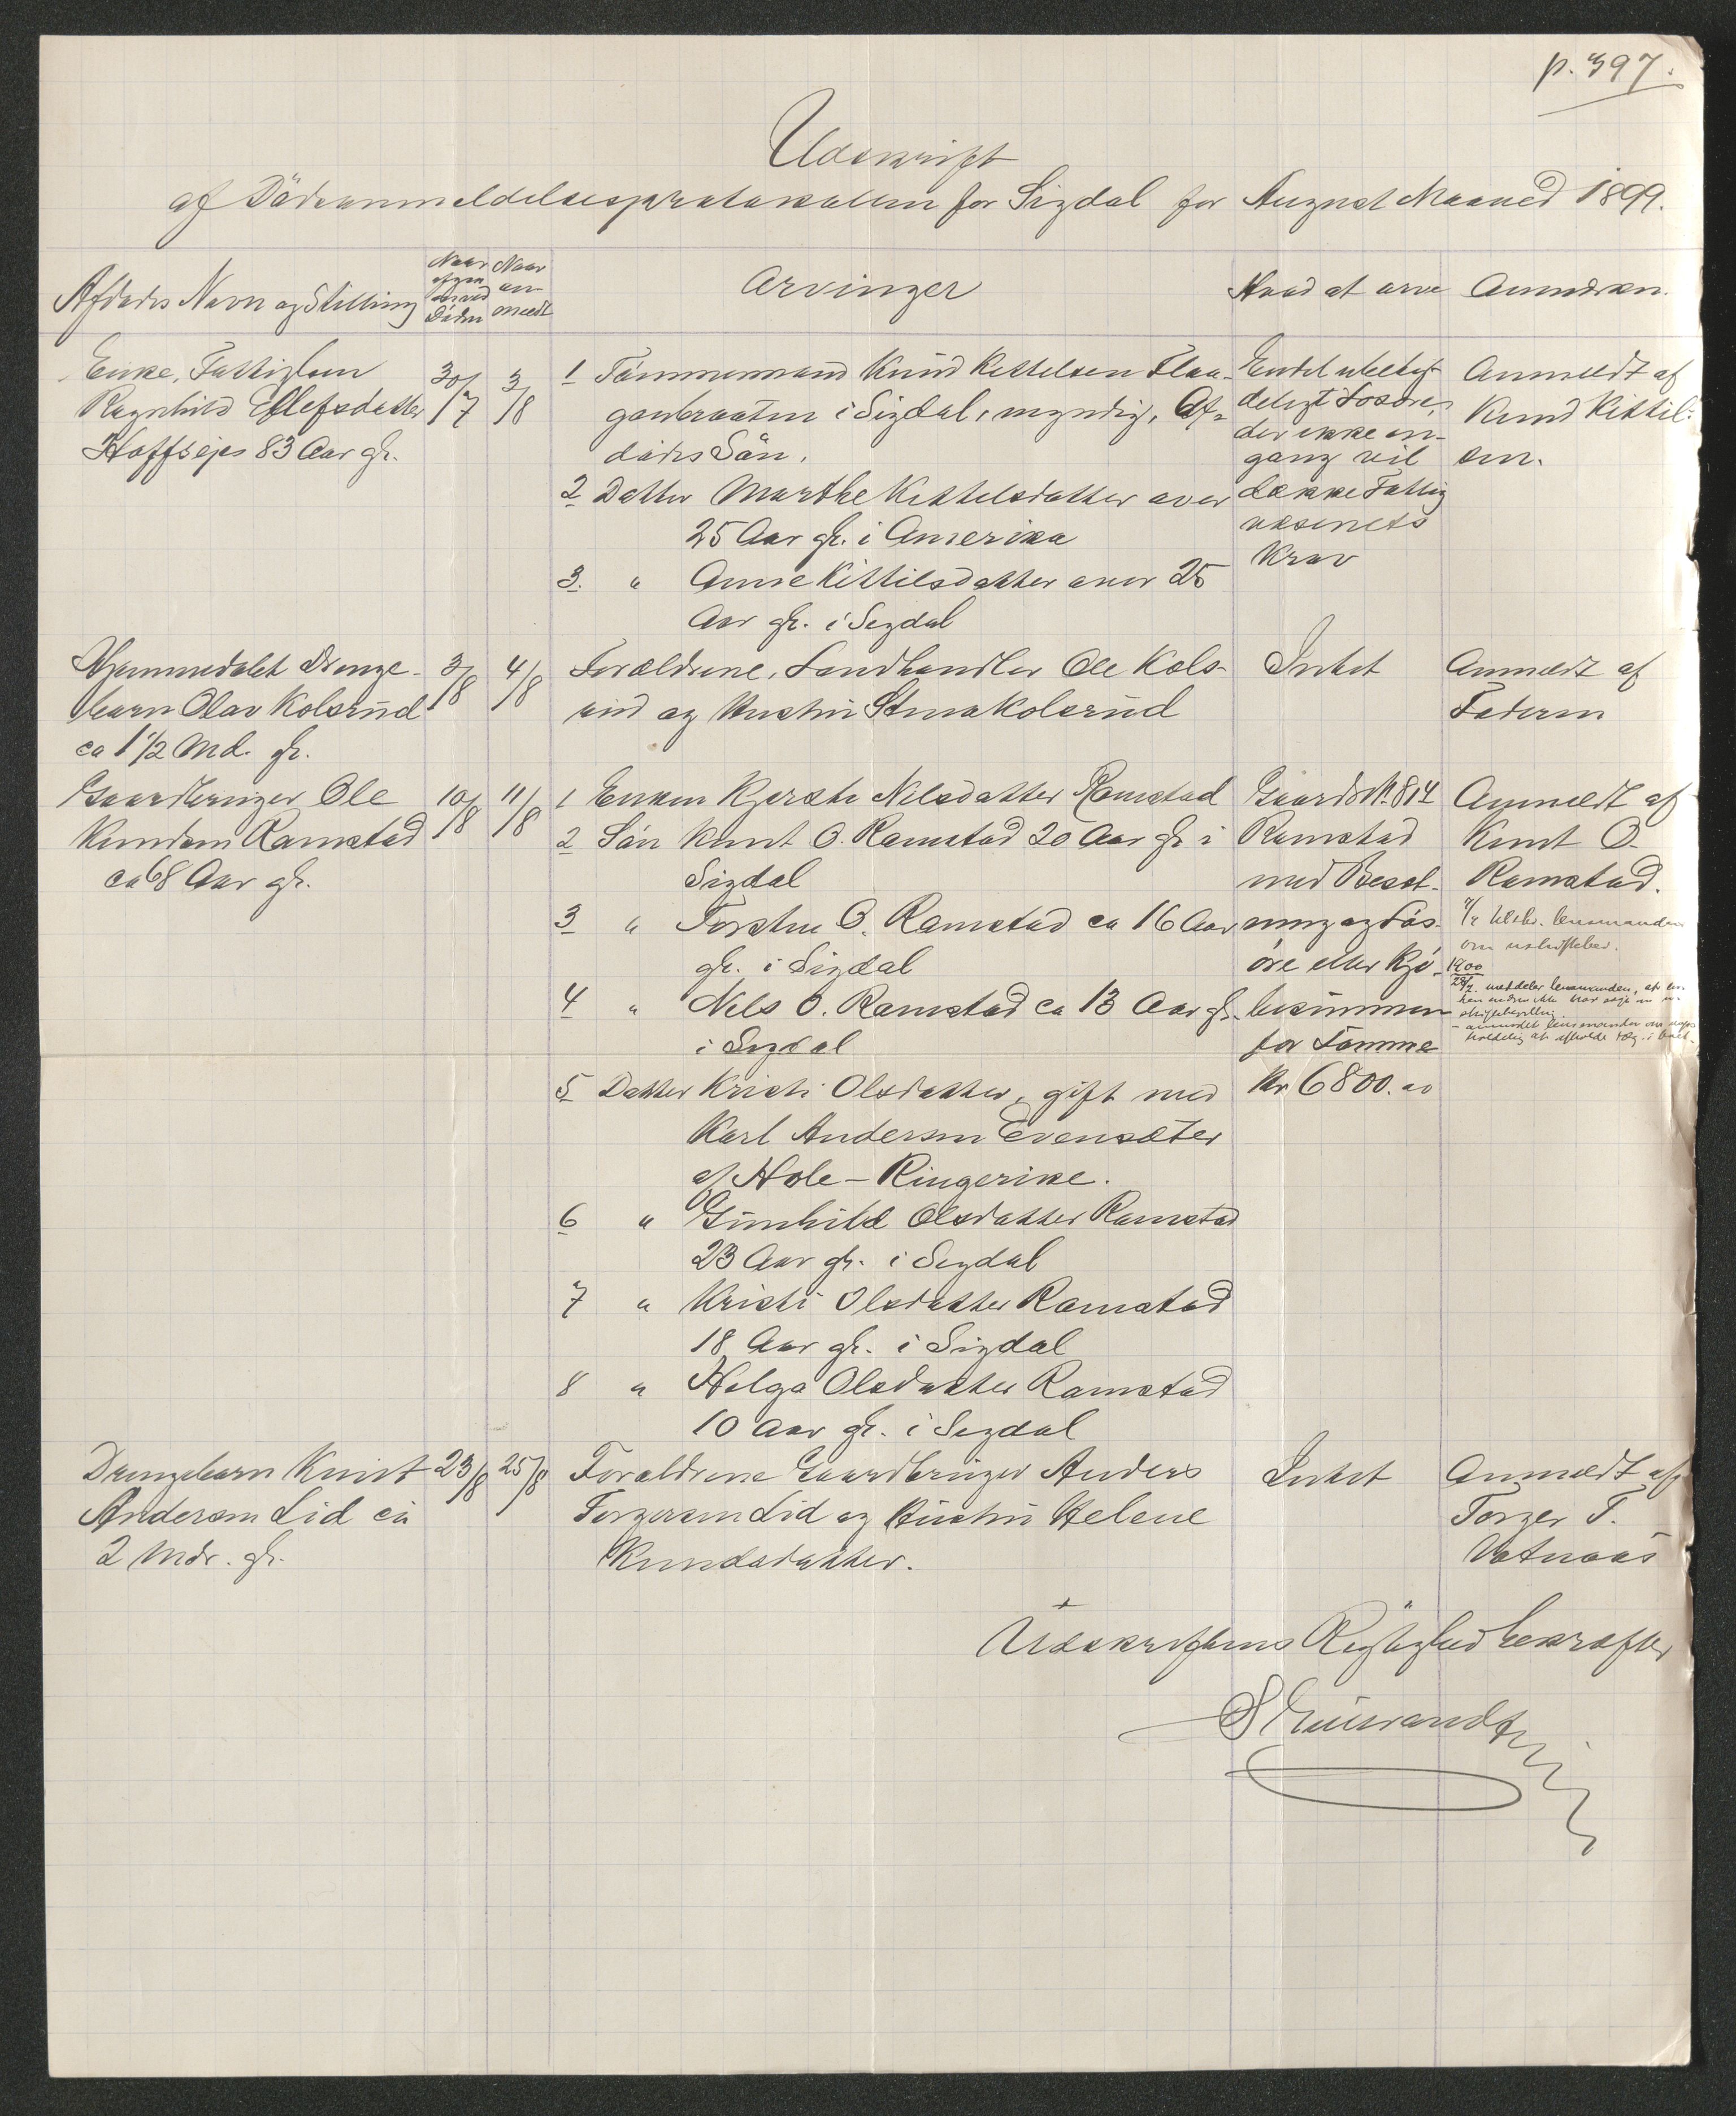 p. 397.
Udskrift
af Dödsanmeldelsesprotokollen for Sigdal for August Maaned 1899.
Afdödes Navn og Stilling
Naar
afgaa
ved
Döden
Naar
an-
meldt
Arvinger
Hvad at arve
Anmærkn.
Enke, Fattiglem
Ragnhild Ellefsdatter
Hoffsejes 83 Aar gl.
30/7
3/8
1 Tömmermand Knud Kittelsen Flaa-
ganbraaten i Sigdal, myndig, Af-
dödes Sön.
2 Datter Marthe Kittelsdatter over
25 Aar gl. i Amerika
3. " Anne Kittilsdatter over 25
Aar gl. i Sigdal
Endel ubety-
deligt Losöre,
der ikke en-
gang vil
dække Fattig
væsenets
Krav
Anmeldt af
Knud Kittil-
sen.
Hjemmedöbt Drenge-
barn Olav Kolsrud
ca 1 1/2 Md. gl.
3/8
4/8
Forældrene, Landhandler Ole Kols-
rud og Hustru Stina Kolsrud
Intet
Anmeldt af
Faderen
Gaardbruger Ole
Knudsen Ramstad
ca 68 Aar gl.
10/8
11/8
1 Enken Kjersti Nilsdatter Ramstad
2 Sön Knut O. Ramstad 20 Aar gl. i
Sigdal
3 " Torsten O. Ramstad ca 16 Aar
gl. i Sigdal
4 " Nils O. Ramstad ca 13 Aar gl.
i Sigdal
5 Datter Kristi Olsdatter, gift med
Karl Andersen Evensæter
af Hole - Ringerike.
6 " Gunhild Olsdatter Ramstad
23 Aar gl. i Sigdal
7 " Kristi Olsdatter Ramstad
18 Aar gl. i Sigdal
8 " Helga Olsdatter Ramstad
10 Aar gl. i Sigdal
Gaards No 814
Ramstad
med Besæt-
ning og Lös-
öre efter Kjö-
besummen
for Tömme
Kr 6800.00
Anmeldt af
Knut O.
Ramstad.
lensmanden
om uskiftebev.
1900
meddeler lensmanden, at en-
ken endnu ikke har
anmodet lensmanden om
Drengebarn Knut
Andersen Lid ca
2 Mdr. gl.
23/8
25/8
Forældrene Gaardbruger Anders
Torgersen Lid og Hustru Helene
Knudsdatter.
Intet
Anmeldt af
Torger T.
Vatnaas
Udskriftens Rigtighed bekræftes